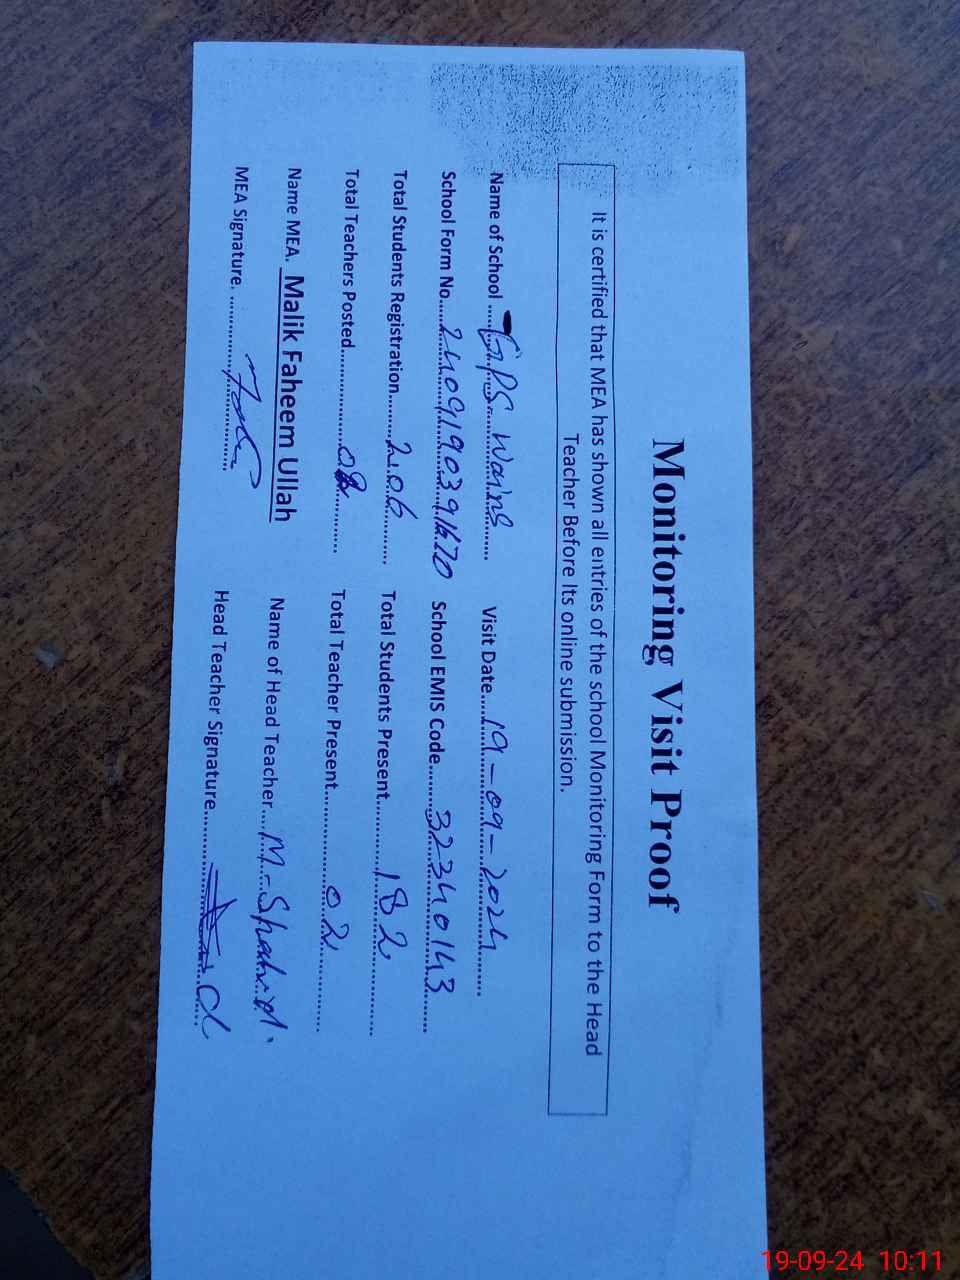 Monitoring Visit Proof
It is certified that MEA has shown all entries of the school Monitoring Form to the Head
Teacher Before Its online submission.
Name of School ......GPS Wains...... Visit Date......19-09-2024......
School Form No......2409190391670 School EMIS Code......32340143......
Total Students Registration......206...... Total Students Present......182......
Total Teachers Posted......02...... Total Teacher Present......02......
Name MEA. Malik Faheem Ullah Name of Head Teacher....M-Shahid.
MEA Signature. ............ Head Teacher Signature............
19-09-24 10:11